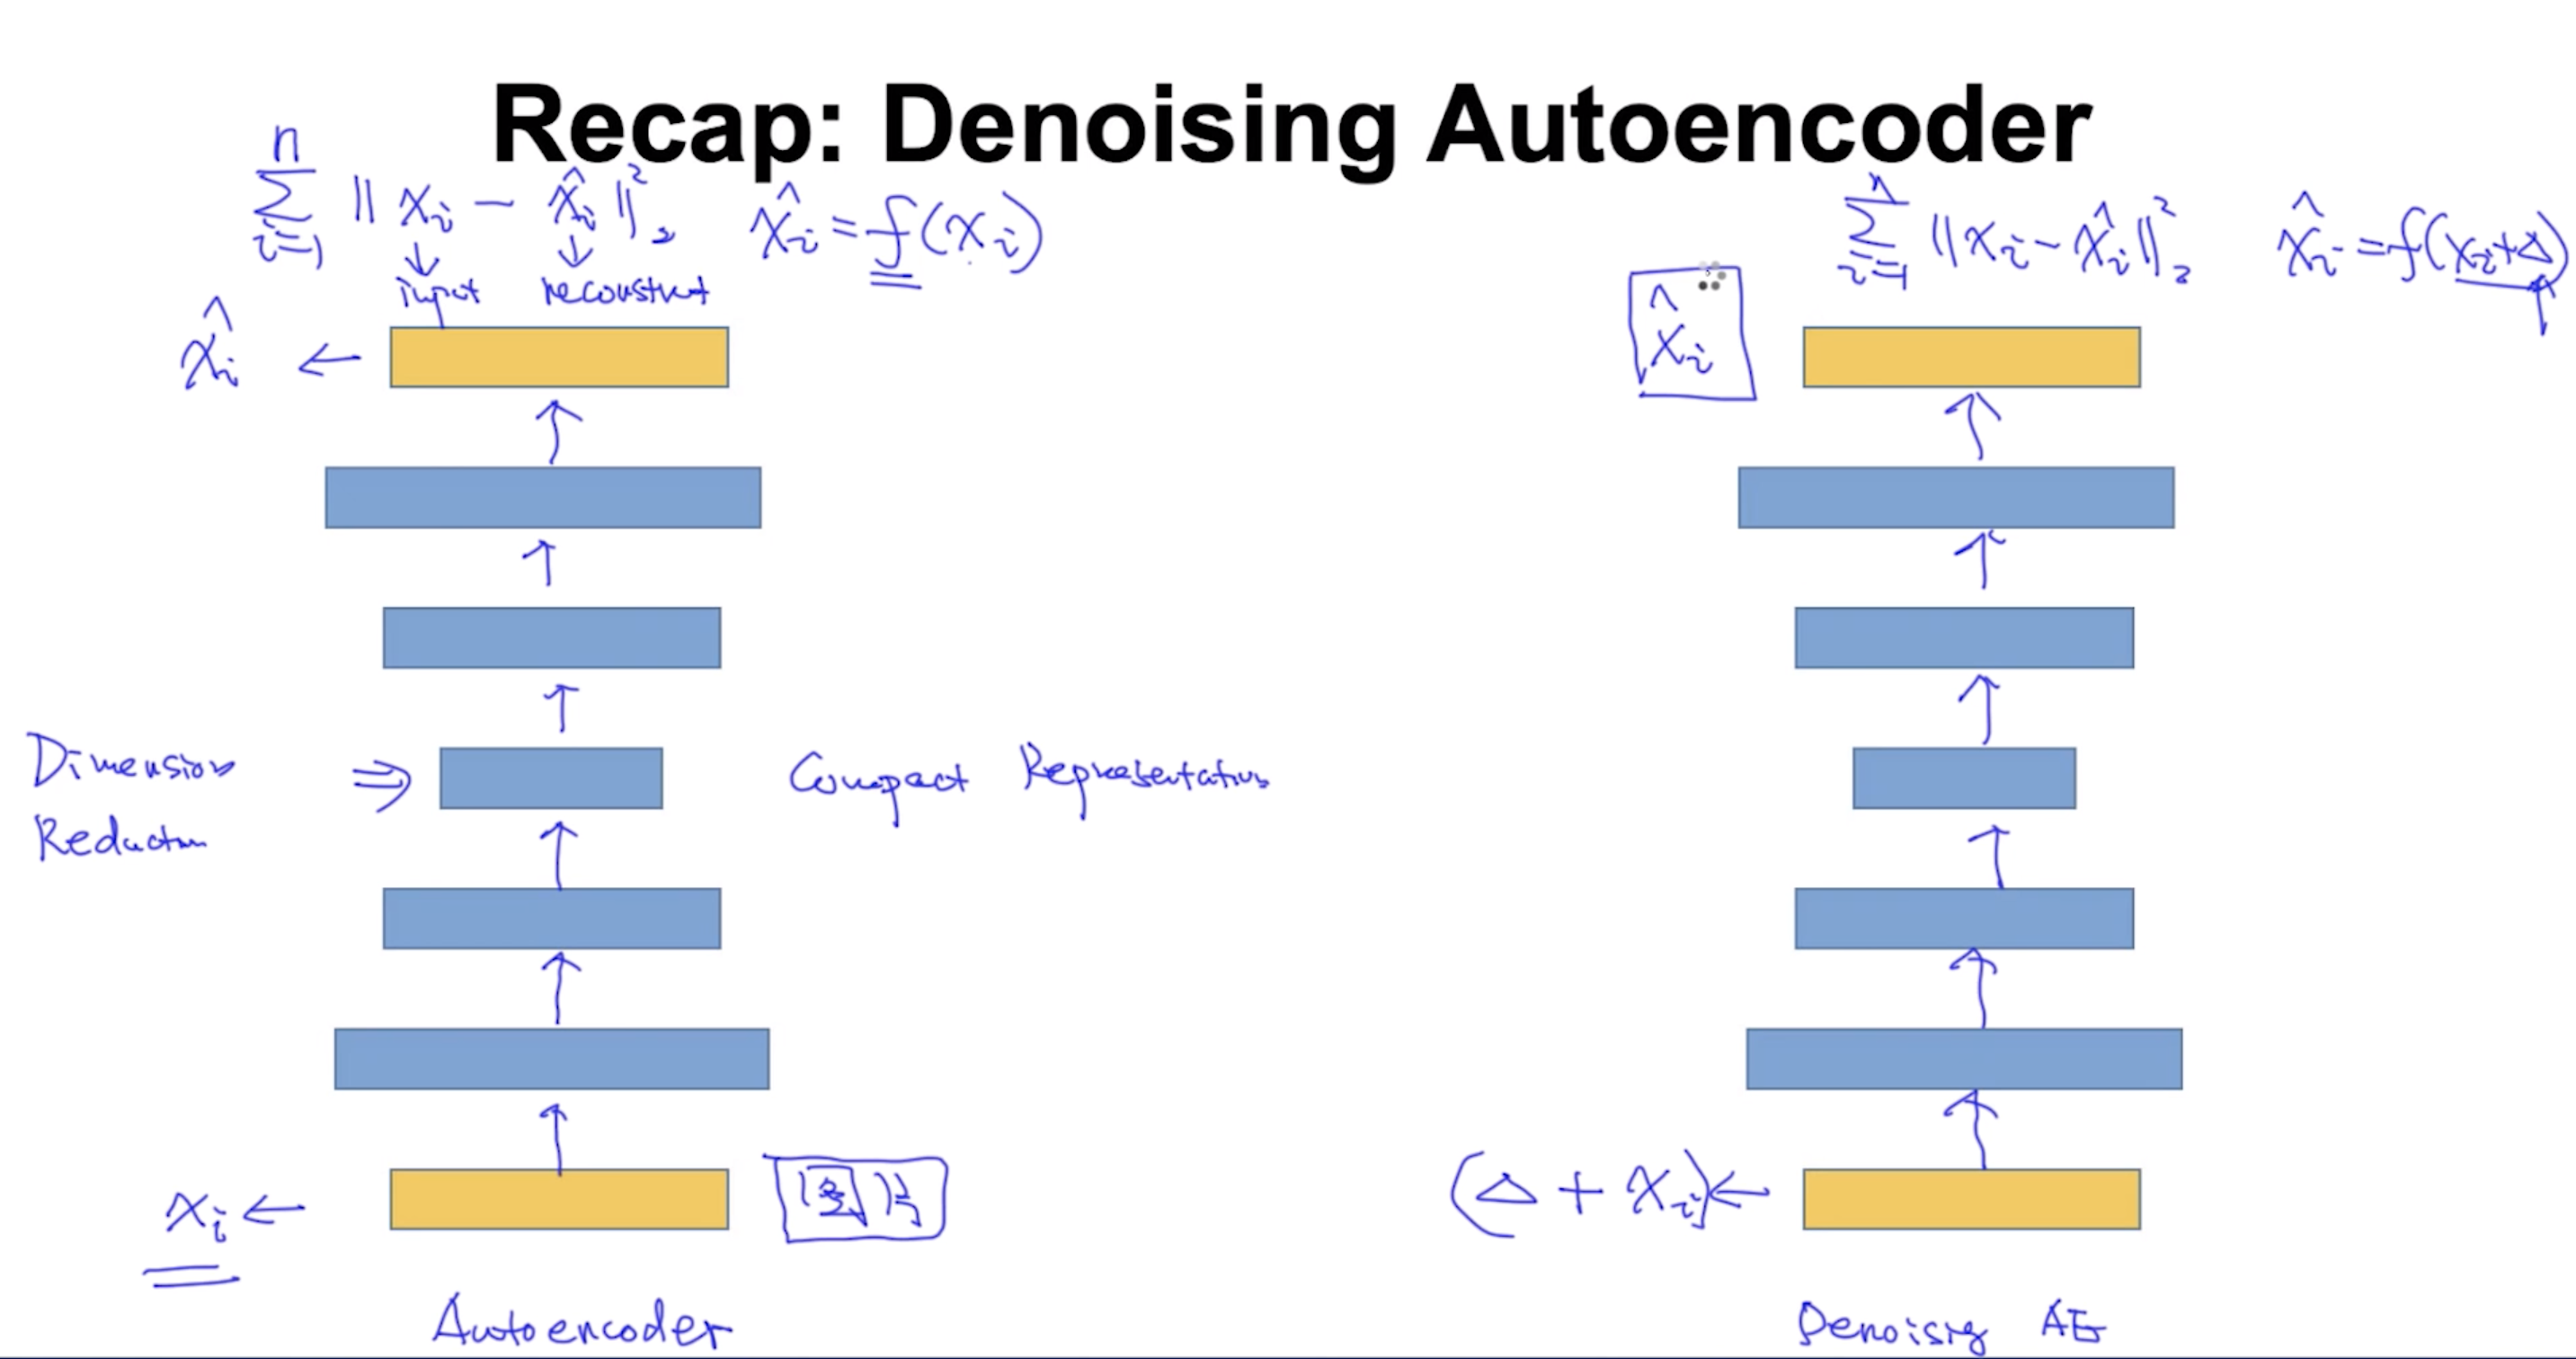 Recap: Denoising Autoencoder
n
∑ || xi − x̂i ||²₂ x̂i = f(xi)
i=1
input reconstruct
x̂i ←
Dimension
Reduction
⇒
Compact Representation
xi ←
Autoencoder
n
∑ || xi − x̂i ||²₂ x̂i = f(xi+Δ)
i=1
x̂i
(Δ + xi) ←
Denoisig AE